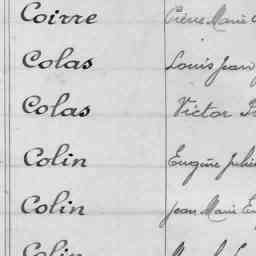 Coirre Pierre Marie
Colas Louis Jean
Colas Victor
Colin Eugène Julien
Colin Jean Marie
Colin